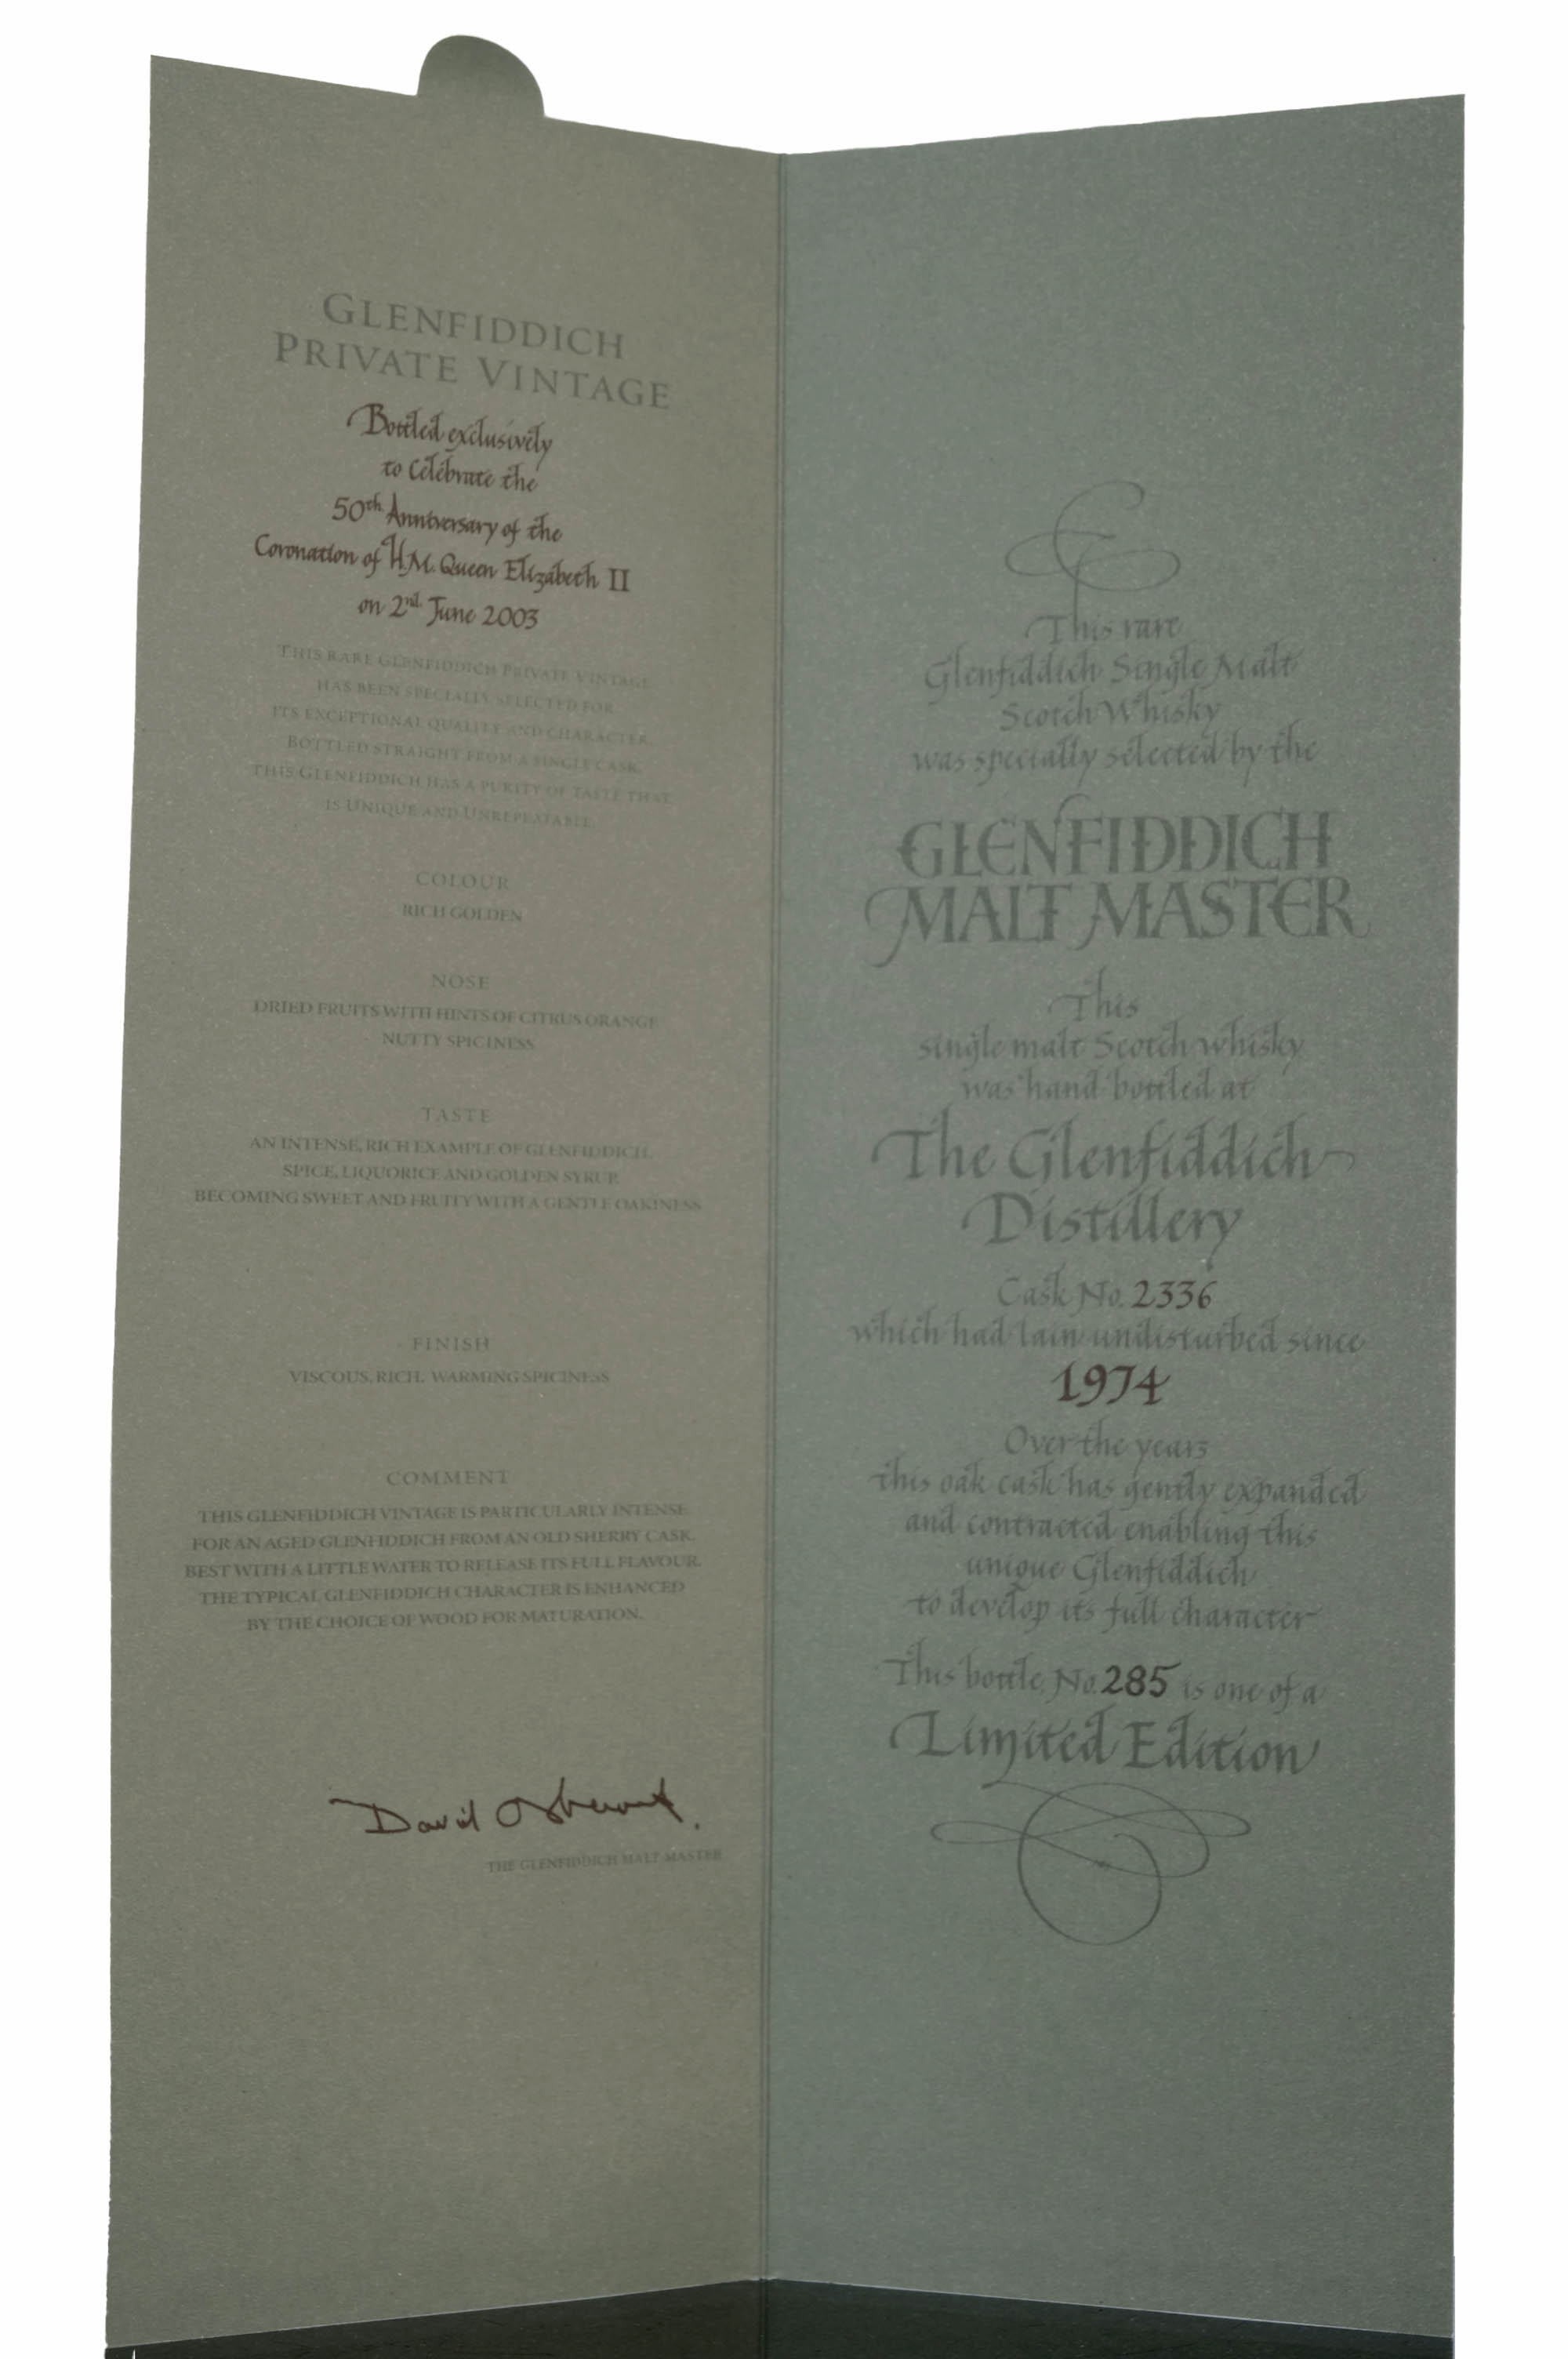 GLENFIDDICH
PRIVATE VINTAGE
Bottled exclusively
to Celebrate the
50th Anniversary of the
Coronation of H.M. Queen Elizabeth II
on 2nd June 2003
THIS RARE GLENFIDDICH PRIVATE VINTAGE
HAS BEEN SPECIALLY SELECTED FOR
ITS EXCEPTIONAL QUALITY AND CHARACTER.
BOTTLED STRAIGHT FROM A SINGLE CASK,
THIS GLENFIDDICH HAS A PURITY OF TASTE THAT
IS UNIQUE AND UNREPEATABLE.
COLOUR
RICH GOLDEN
NOSE
DRIED FRUITS WITH HINTS OF CITRUS ORANGE
NUTTY SPICINESS
TASTE
AN INTENSE, RICH EXAMPLE OF GLENFIDDICH.
SPICE, LIQUORICE AND GOLDEN SYRUP,
BECOMING SWEET AND FRUITY WITH A GENTLE OAKINESS
FINISH
VISCOUS, RICH, WARMING SPICINESS
COMMENT
THIS GLENFIDDICH VINTAGE IS PARTICULARLY INTENSE
FOR AN AGED GLENFIDDICH FROM AN OLD SHERRY CASK.
BEST WITH A LITTLE WATER TO RELEASE ITS FULL FLAVOUR.
THE TYPICAL GLENFIDDICH CHARACTER IS ENHANCED
BY THE CHOICE OF WOOD FOR MATURATION.
David
THE GLENFIDDICH MALT MASTER
This rare
Glenfiddich Single Malt
Scotch Whisky
was specially selected by the
GLENFIDDICH
MALT MASTER
This
single malt Scotch whisky
was hand bottled at
The Glenfiddich
Distillery
Cask No. 2336
which had lain undisturbed since
1974
Over the years
this oak cask has gently expanded
and contracted enabling this
unique Glenfiddich
to develop its full character
This bottle, No. 285 is one of a
Limited Edition